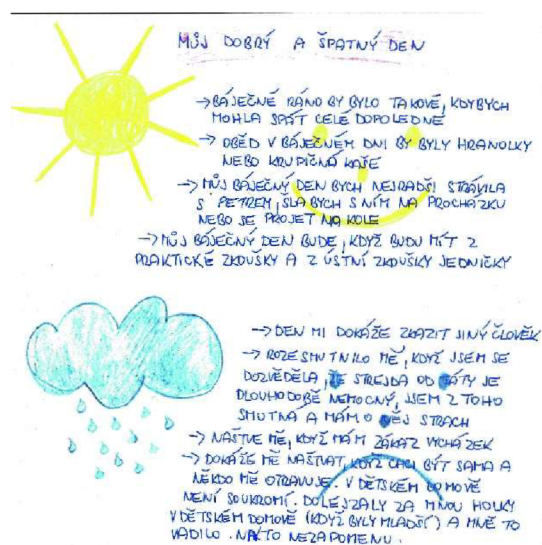 MŮJ DOBRÝ A ŠPATNÝ DEN
→ BÁJEČNÉ RÁNO BY BYLO TAKOVÉ, KDYBYCH
MOHLA SPÁT CELÉ DOPOLEDNE
→ OBĚD V BÁJEČNÉM DNI BY BYLY HRANOLKY
NEBO KRUPIČNÁ KAŠE
→ MŮJ BÁJEČNÝ DEN BYCH NEJRADŠI STRÁVILA
S PETREM, ŠLA BYCH S NÍM NA PROCHÁZKU
NEBO SE PROJET NA KOLE
→ MŮJ BÁJEČNÝ DEN BUDE, KDYŽ BUDU MÍT Z
PRAKTICKÉ ZKOUŠKY A Z ÚSTNÍ ZKOUŠKY JEDNIČKY
→ DEN MI DOKÁŽE ZKAZIT JINÝ ČLOVĚK
→ ROZESMUTNILO MĚ, KDYŽ JSEM SE
DOZVĚDĚLA, ŽE STREJDA OD TÁTY JE
DLOUHODOBĚ NEMOCNÝ, JSEM Z TOHO
SMUTNÁ A MÁM O NĚJ STRACH
→ NAŠTVE MĚ, KDYŽ MÁM ZÁKAZ VYCHÁZEK
→ DOKÁŽE MĚ NAŠTVAT, KDYŽ CHCI BÝT SAMA A
NĚKDO MĚ OTRAVUJE. V DĚTSKÉM DOMOVĚ
NENÍ SOUKROMÍ. DOLEJZALY ZA MNOU HOLKY
V DĚTSKÉM DOMOVĚ (KDYŽ BYLY MLADŠÍ) A MNĚ TO
VADILO. NA TO NEZAPOMENU.